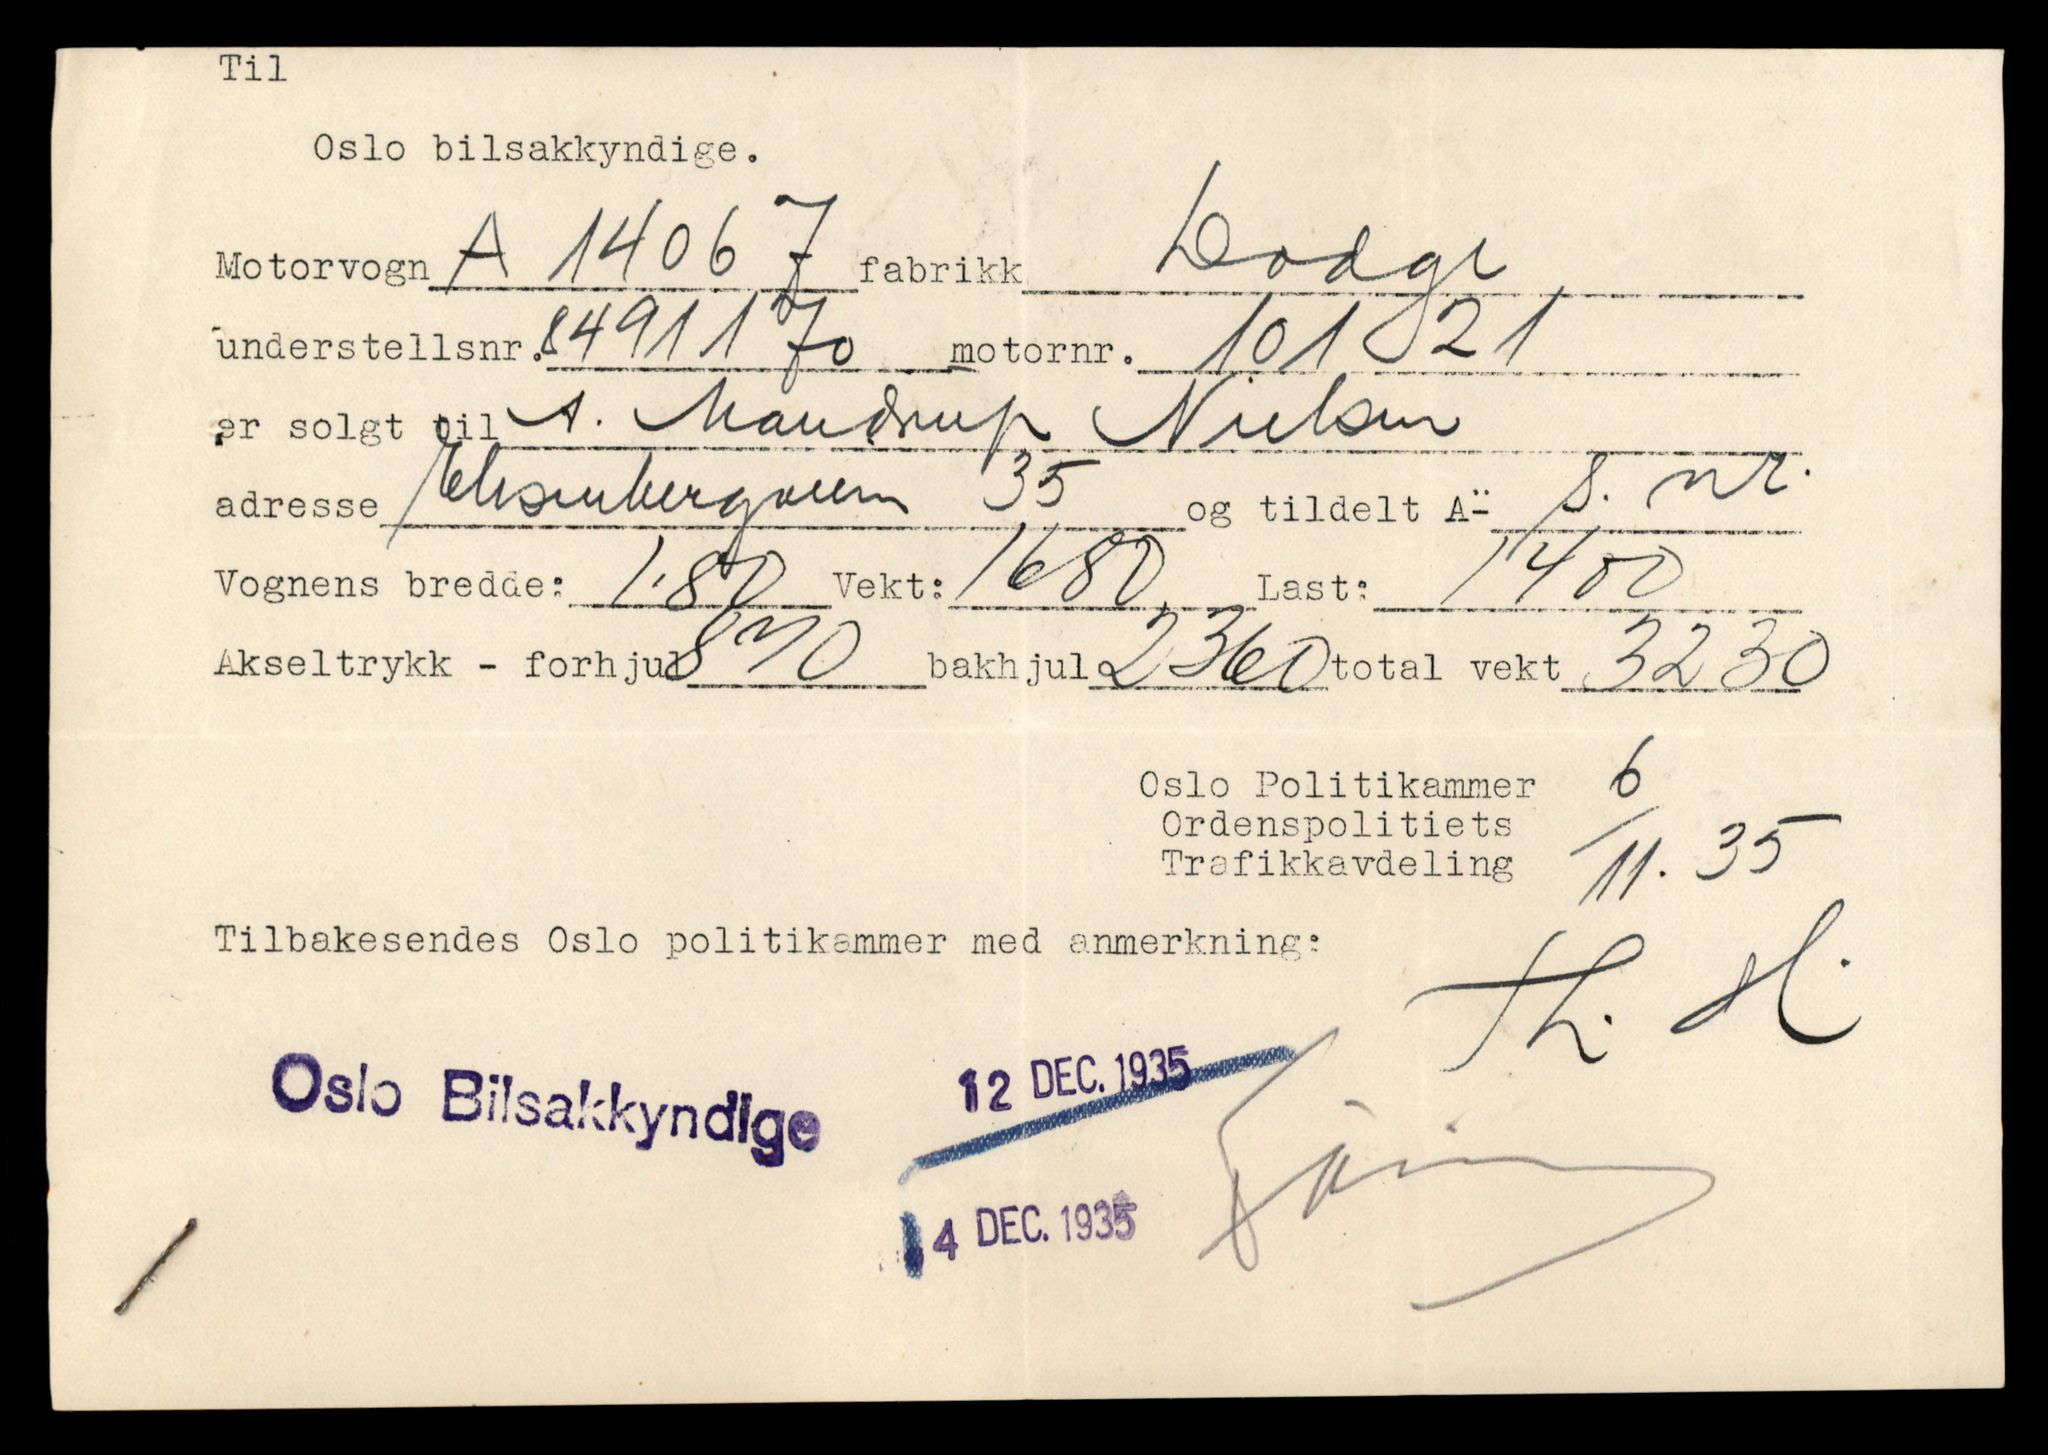 Til
Oslo bilsakkyndige.
Motorvogn A 14067 fabrikk Dodge
understellsnr. 8491170 motornr. 101521
er solgt til A. Mandrup Nielsen
adresse Elisenbergveien 35 og tildelt A- s. nr.
Vognens bredde: 1.80 Vekt: 1680 Last: 1400
Akseltrykk - forhjul 870 bakhjul 2360 total vekt 3230
Oslo Politikammer 6
Ordenspolitiets
Trafikkavdeling /11. 35
Tilbakesendes Oslo politikammer med anmerkning:
Th. H.
Oslo Bilsakkyndige 12 DEC. 1935
14 DEC. 1935